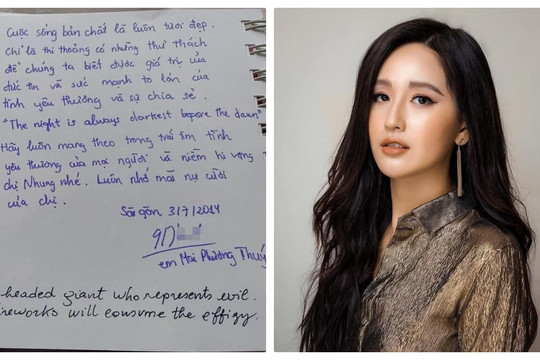 Cuộc sống bản chất là luôn tươi đẹp.
Chỉ là thi thoảng có những thử thách
để chúng ta biết được giá trị của
đức tin và sức mạnh to lớn của
tình yêu thương và sự chia sẻ.
"The night is always darkest before the dawn"
Hãy luôn mang theo trong trái tim tình
yêu thương của mọi người và niềm hi vọng
chị Nhung nhé. Luôn nhớ mãi nụ cười
của chị.
Sài gòn 31/7/2014
em Mai Phương Thuý
headed giant who represents evil.
ireworks will consume the effigy.